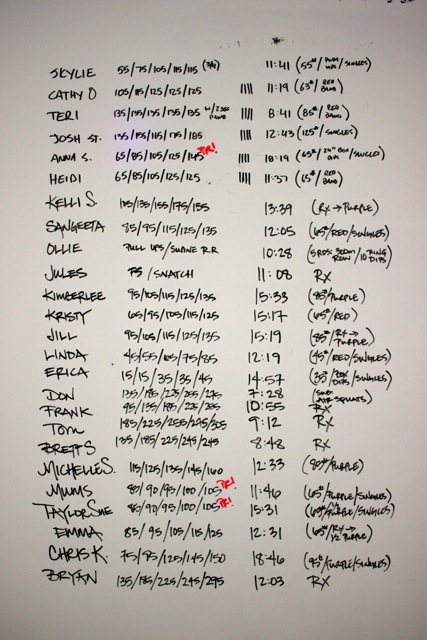 SKYLIE 55/75/105/115/115 (3/4) 11:41 (55#/PUSH UPS/SINGLES)
CATHY O 105/115/125/125/125 |||| 11:19 (63#/RED BAND)
TERI 135/135/135/135/135 W/2 SEC PAUSE |||| 8:41 (85#/RED BAND)
JOSH ST. 135/155/115/175/185 |||| 12:43 (125#/SINGLES)
ANNA S. 65/85/105/125/145 PR! |||| 18:19 (65#/24" BOX /SINGLES)
HEIDI 65/85/105/125/125 |||| 11:37 (65#/RED BAND)
KELLI S. 135/135/155/175/155 13:39 (RX→PURPLE)
SANGEETA 85/95/115/125/135 12:05 (65#/RED/SINGLES)
OLLIE PULL UPS/SUPINE R.R. 10:28 (5 RDS: 300M ROW/10 RING DIPS)
JULES PS/SNATCH 11:08 RX
KIMBERLEE 95/105/115/125/135 15:33 (85#/PURPLE)
KRISTY 65/95/105/115/125 15:17 (65#/RED)
JILL 95/105/115/125/135 15:19 (85#/RX→PURPLE)
LINDA 45/55/65/75/85 12:19 (45#/RED/SINGLES)
ERICA 15/15/35/35/45 14:57 (35#/BOX DIPS/SINGLES)
DON 135/185/225/255/275 7:28 (SUB: AIR SQUATS)
FRANK 95/135/185/225/305 10:55 RX
TOM 185/225/255/295/305 9:12 RX
BRETT S 135/185/225/245/245 8:48 RX
MICHELLE S. 115/125/135/145/160 12:33 (80#/PURPLE)
MUMS 80/90/95/100/105 PR! 11:46 (65#/PURPLE/SINGLES)
TAYLOR SUE 80/90/95/100/105 PR! 15:31 (/PURPLE/SINGLES)
EMMA 85/95/105/115/125 12:31 (65#/RX→1/2 PURPLE)
CHRIS K. 75/95/125/145/150 18:46 (95#/PURPLE/SINGLES)
BRYAN 135/185/225/245/295 12:03 RX